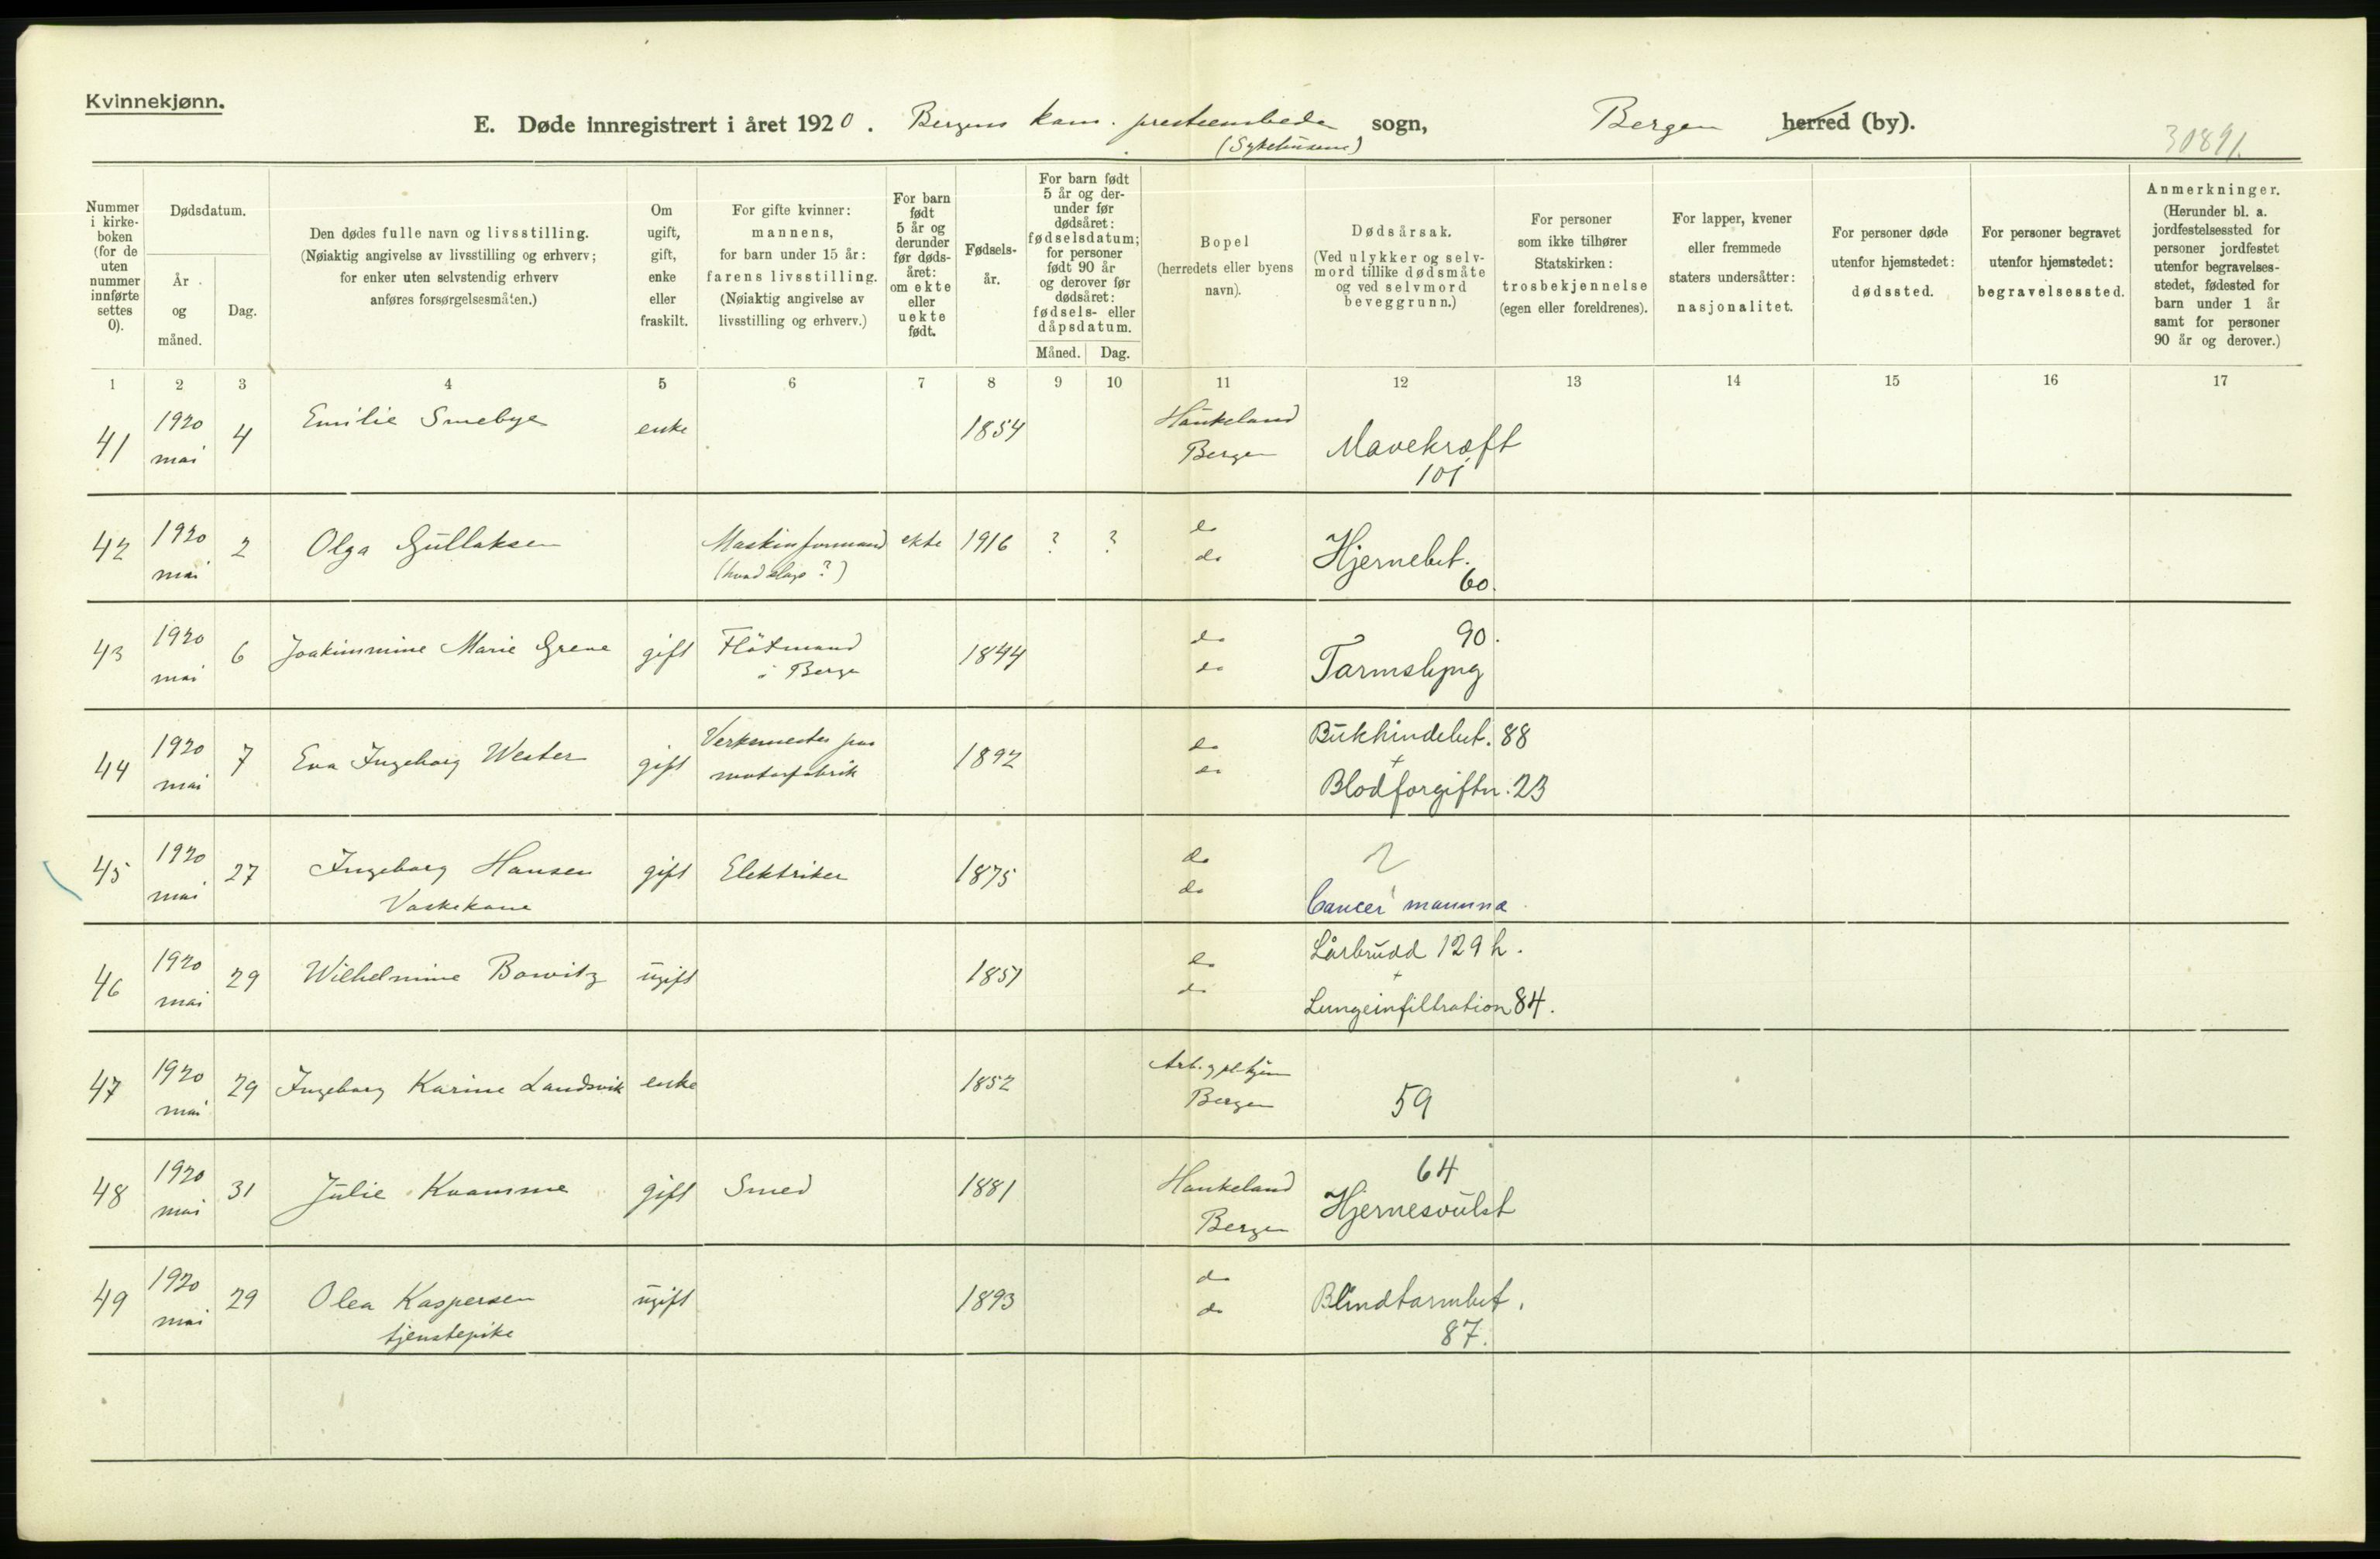 Kvinnekjønn.
E. Døde innregistrert i året 1920. Bergens kom. presteembede sogn, Bergen herred (by).
(Sykehusene)
30891.
Nummer i kirke-boken (for de uten nummer innførte settes 0).
Dødsdatum.
År og måned.
Dag.
Den dødes fulle navn og livsstilling.
(Nøiaktig angivelse av livsstilling og erhverv;
for enker uten selvstendig erhverv
anføres forsørgelsesmåten.)
Om ugift, gift, enke eller fraskilt.
For gifte kvinner:
mannens,
for barn under 15 år:
farens livsstilling.
(Nøiaktig angivelse av
livsstilling og erhverv.)
For barn født 5 år og derunder før døds-året: om ekte eller uekte født.
Fødsels-år.
For barn født 5 år og der-under før dødsåret: fødselsdatum; for personer født 90 år og derover før dødsåret: fødsels- eller dåpsdatum.
Måned. Dag.
Bopel
(herredets eller byens
navn).
Dødsårsak.
(Ved ulykker og selv-
mord tillike dødsmåte
og ved selvmord
beveggrunn.)
For personer
som ikke tilhører
Statskirken:
trosbekjennelse
(egen eller foreldrenes).
For lapper, kvener
eller fremmede
staters undersåtter:
nasjonalitet.
For personer døde
utenfor hjemstedet:
dødssted.
For personer begravet
utenfor hjemstedet:
begravelsessted.
Anmerkninger.
(Herunder bl. a.
jordfestelsessted for
personer jordfestet
utenfor begravelses-
stedet, fødested for
barn under 1 år
samt for personer
90 år og derover.)
1 2 3 4 5 6 7 8 9 10 11 12 13 14 15 16 17
41 1920 mai 4 Emilie Smebye enke 1854 Haukeland Bergen Mavekræft 101
42 1920 mai 2 Olga Gullaksen Maskinformand (hvad slags?) ekte 1916 ? ? do do Hjernebet. 60.
43 1920 mai 6 Joakimmine Marie Grene gift Fløtmand i Bergen 1844 do do 90. Tarmslyng
44 1920 mai 7 Eva Ingeborg Wester gift Verksmester paa motorfabrik 1892 do do Bukhindebet. 88 + Blodforgiftn. 23
45 1920 mai 27 Ingeborg Hansen Vaskekone gift Elektriker 1875 do do Cancer mamma
46 1920 mai 29 Wilhelmine Bowitz ugift 1851 do do Lårbrudd 129 h. + Lungeinfiltration 84.
47 1920 mai 29 Ingeborg Karine Landsvik enke 1852 Bergen 59
48 1920 mai 31 Julie Kvamme gift Smed 1881 Haukeland Bergen 64 Hjernesvulst
49 1920 mai 29 Olea Kaspersen tjenestepike ugift 1893 do do Blindtarmbet. 87.